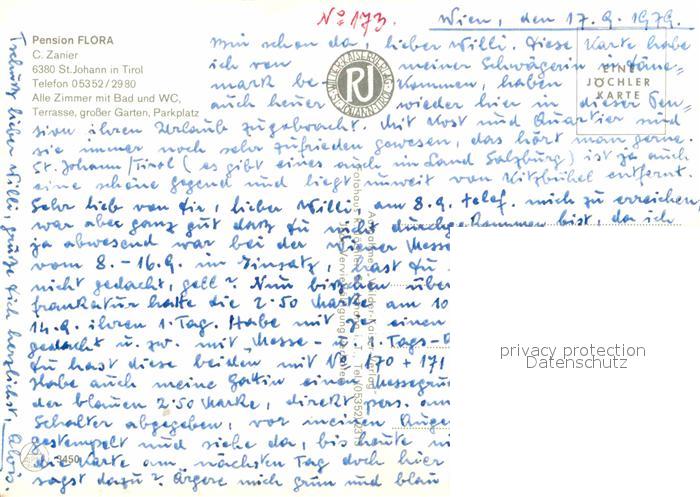 No 173.
Wien, den 17. 9. 1979.
Pension FLORA
C. Zanier
6380 St.Johann in Tirol
Telefon 0 53 52 / 29 80
Alle Zimmer mit Bad und WC,
Terrasse, großer Garten, Parkplatz
RJ
EINE
JÖCHLER
KARTE
Bin schon da, lieber Willi. Diese Karte habe
ich von meiner Schwägerin in Däne-
mark be- kommen, haben
auch heuer wieder hier in dieser Pen-
sion ihren Urlaub zugebracht. Mit Kost und Quartier sind
sie immer noch sehr zufrieden gewesen, das hört man gerne.
St. Johann/Tirol (es gibt eines auch im Land Salzburg) ist ja auch
eine schöne Gegend und liegt unweit von Kitzbühel entfernt.
Sehr lieb von Dir, lieber Willi, am 8.9. telef. mich zu erreichen,
war aber ganz gut daß Du nicht durchgekommen bist, da ich
ja abwesend war bei der Wiener Messe
vom 8.-16.9. im Einsatz, hast Du
nicht gedacht, gell? Nun bißchen über
Frankatur hatte die 2.50 Marke am 10
14.9. ihren 1. Tag. Habe mit je einen
gedacht u. zw. mit Messe- u. 1. Tags-
Du hast diese beiden mit No 170 + 171
Habe auch meine Gattin einen Messegru
der blauen 2.50 Marke, direkt pers. am
Schalter abgegeben, vor meinen Auge
gestempelt und siehe da, bis heute
die Karte am nächsten Tag doch hier
sagst dazu? Ärgere mich grün und blau
Tschüß lieber Willi, grüße Dich herzlichst Alois.
3450
privacy protection
Datenschutz